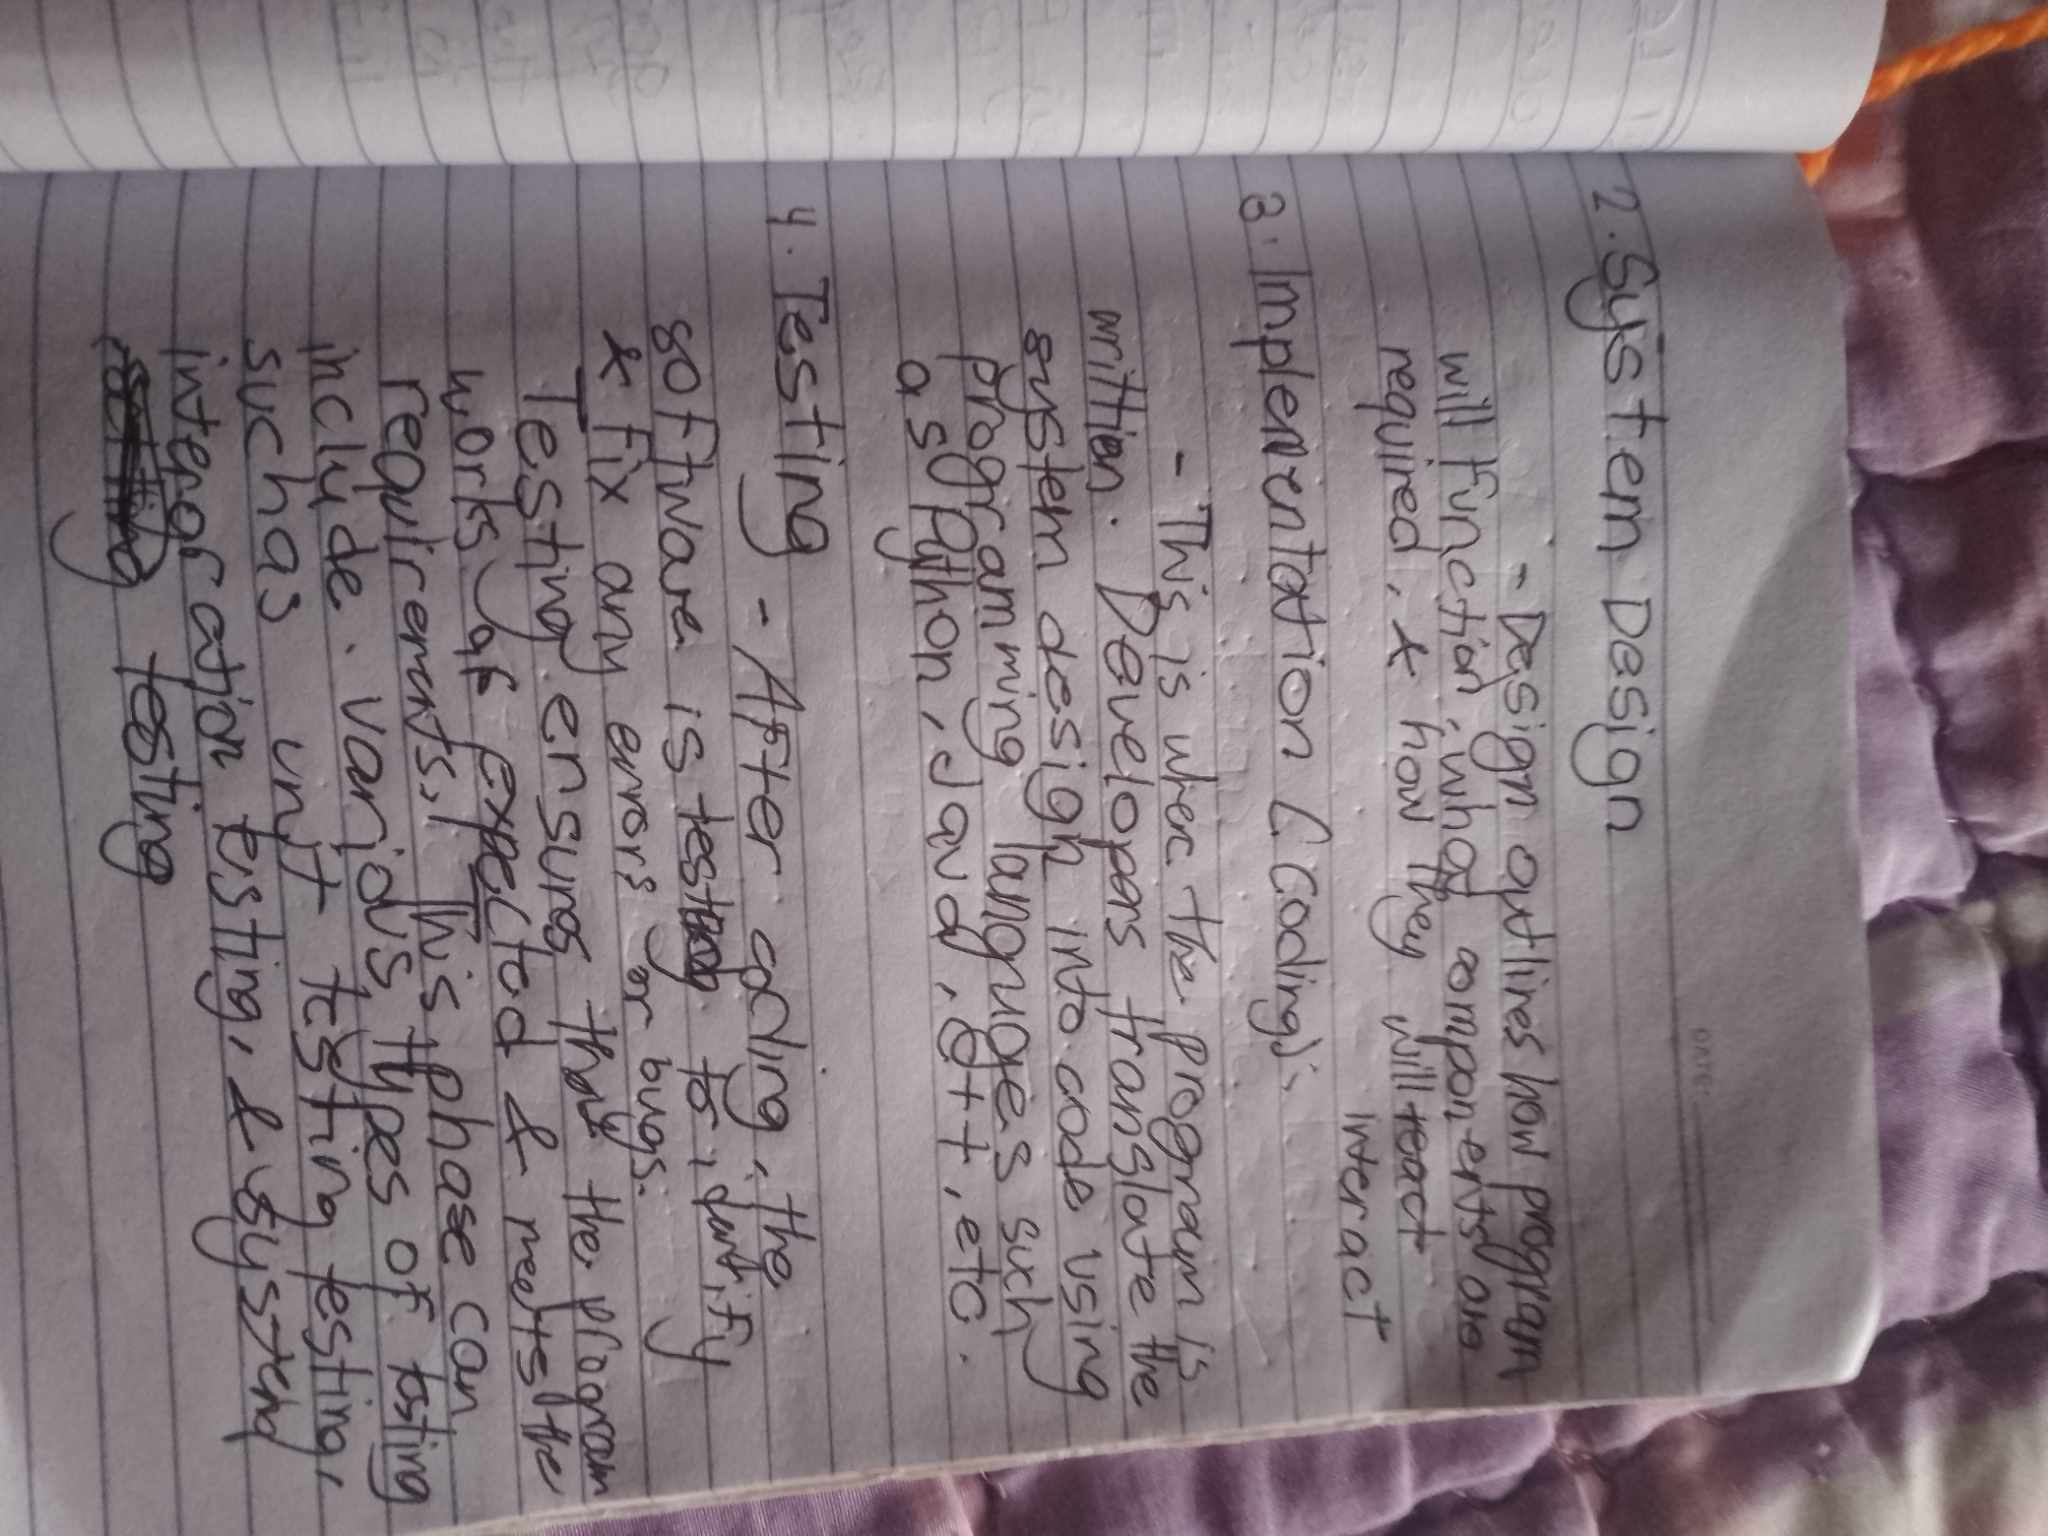 DATE
2. System Design
- Design outlines how program
will function, what components are
required, & how they will react
interact
3. Implementation (Coding):
- This is where the program is
written. Developers translate the
system design into code using
programming languages such
as Python, Java, C++, etc.
4. Testing - After coding, the
software is testing to identify
& fix any errors or bugs.
Testing ensures that the program
works as expected & meets the
requirements. This phase can
include various types of testing
such as unit testing,
integration testing, & system
testing